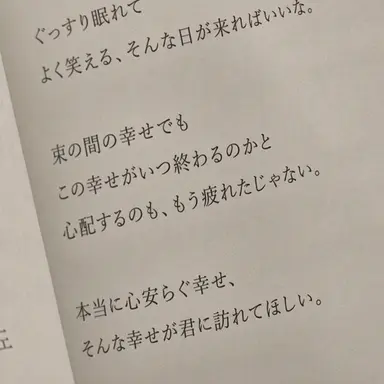 ぐっすり眠れて
よく笑える、そんな日が来ればいいな。
束の間の幸せでも
この幸せがいつ終わるのかと
心配するのも、もう疲れたじゃない。
本当に心安らぐ幸せ、
そんな幸せが君に訪れてほしい。